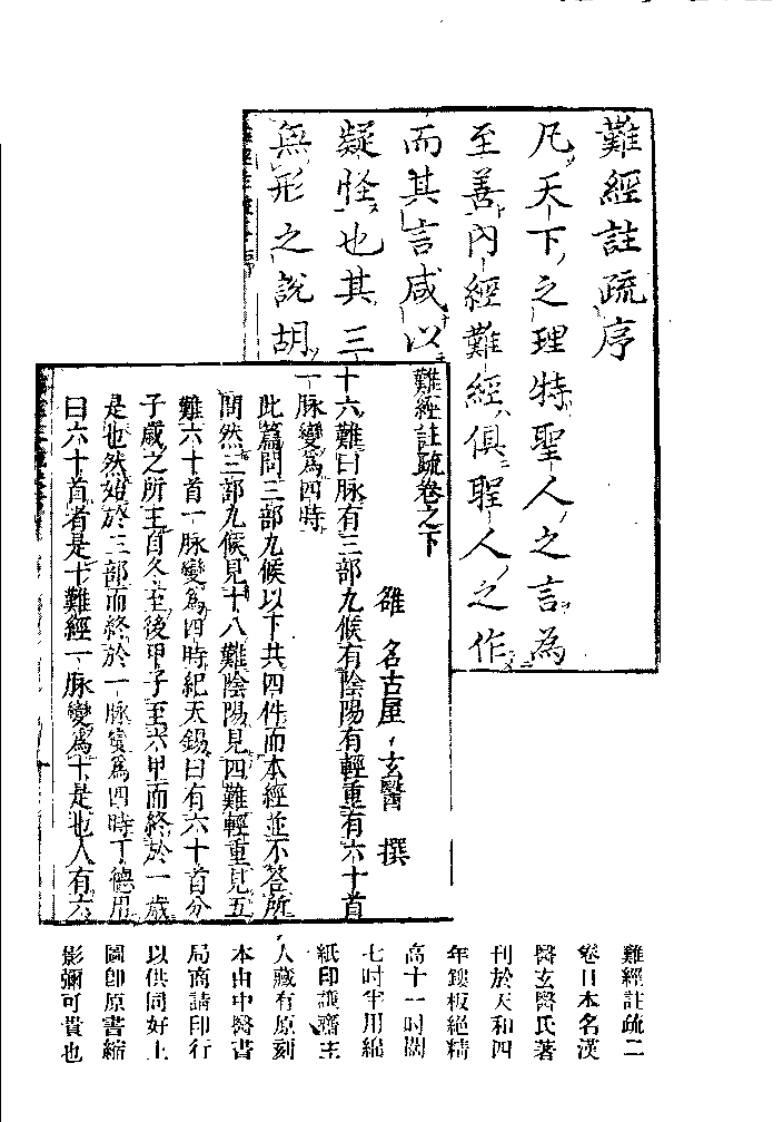 難經註疏序
凡天下之理特聖人之言為
至善內經難經俱聖人之作
而其言咸以
疑怪也其三
無形之說胡
難經註疏卷之下
雒 名古屋玄醫 撰
十六難曰脉有三部九候有陰陽有輕重有六十首
一脉變爲四時
此篇問三部九候以下共四件而本經並不答所
問然三部九候見十八難陰陽見四難輕重見五
難六十首一脉變爲四時紀天錫曰有六十首分
子歲之所王自冬至後甲子至六甲而終於一歲
是也然始於三部而終於一脉變爲四時丁德用
曰六十首者是十難經一脉變爲十是也人有六
難經註疏二
卷日本名漢
醫玄醫氏著
刊於天和四
年鏤板絕精
高十一吋闊
七吋半用綿
紙印謙齋主
人藏有原刻
本由中醫書
局商請印行
以供同好上
圖卽原書縮
影彌可貴也